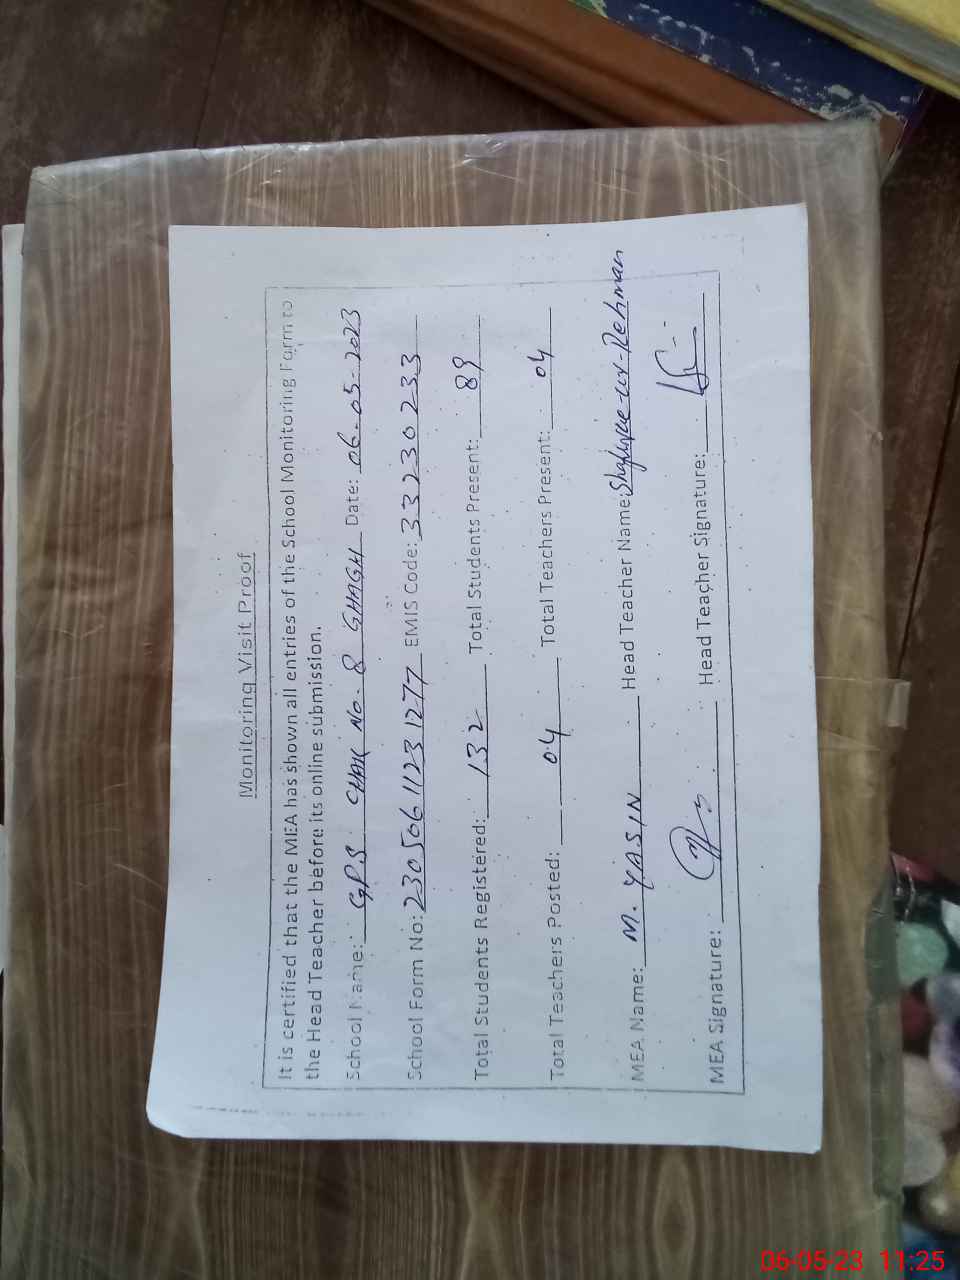 Monitoring Visit Proof
It is certified that the MEA has shown all entries of the School Monitoring Form to
the Head Teacher before its online submission.
School Name: GPS CHAK No. 8 GHAGH Date: 06-05-2023
School Form No: 23050611231277 EMIS Code: 33230233
Total Students Registered: 132 Total Students Present: 89
Total Teachers Posted: 04 Total Teachers Present: 04
MEA Name: M. YASIN Head Teacher Name: Shafique-ur-Rehman
MEA Signature: Head Teacher Signature:
06-05-23 11:25